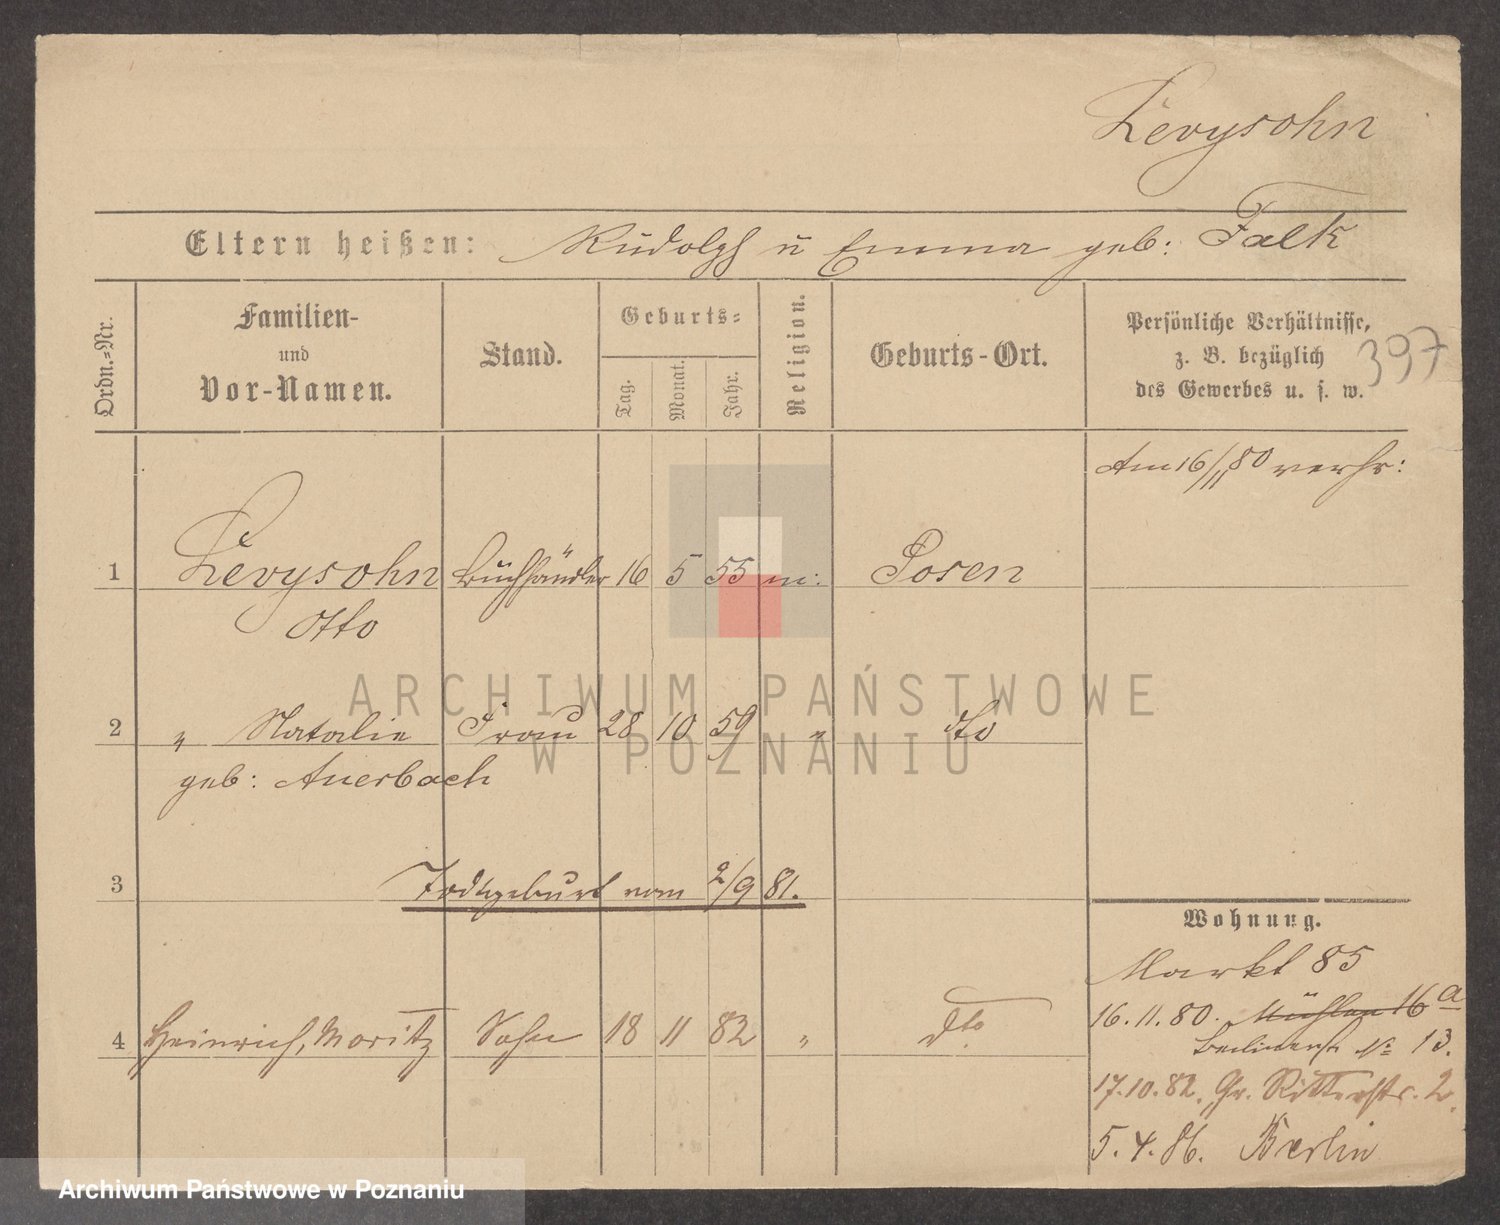 Levysohn
Eltern heißen: Rudolph u Emma geb: Falk
Ordn.=Nr.
Familien-
und
Vor-Namen.
Stand.
Geburts=
Tag.
Monat.
Jahr.
Religion.
Geburts-Ort.
Persönliche Verhältnisse,
z. B. bezüglich
des Gewerbes u. s. w.
397
Am 16/11 80 verhr:
1 Levysohn Buchhändler 16 5 55 m: Posen
Otto
2 " Natalie Frau 28 10 59 " dto
geb: Auerbach
3 Todtgeburt vom 2/9 81.
Wohnung.
Markt 85
16.11.80. Mühlen 16 a
Berlinerstr No 13.
17.10.82. Gr. Ritterstr. 2.
5.4.86. Berlin
4 Heinrich, Moritz Sohn 18 11 82 " dto
ARCHIWUM PAŃSTWOWE
W POZNANIU
Archiwum Państwowe w Poznaniu